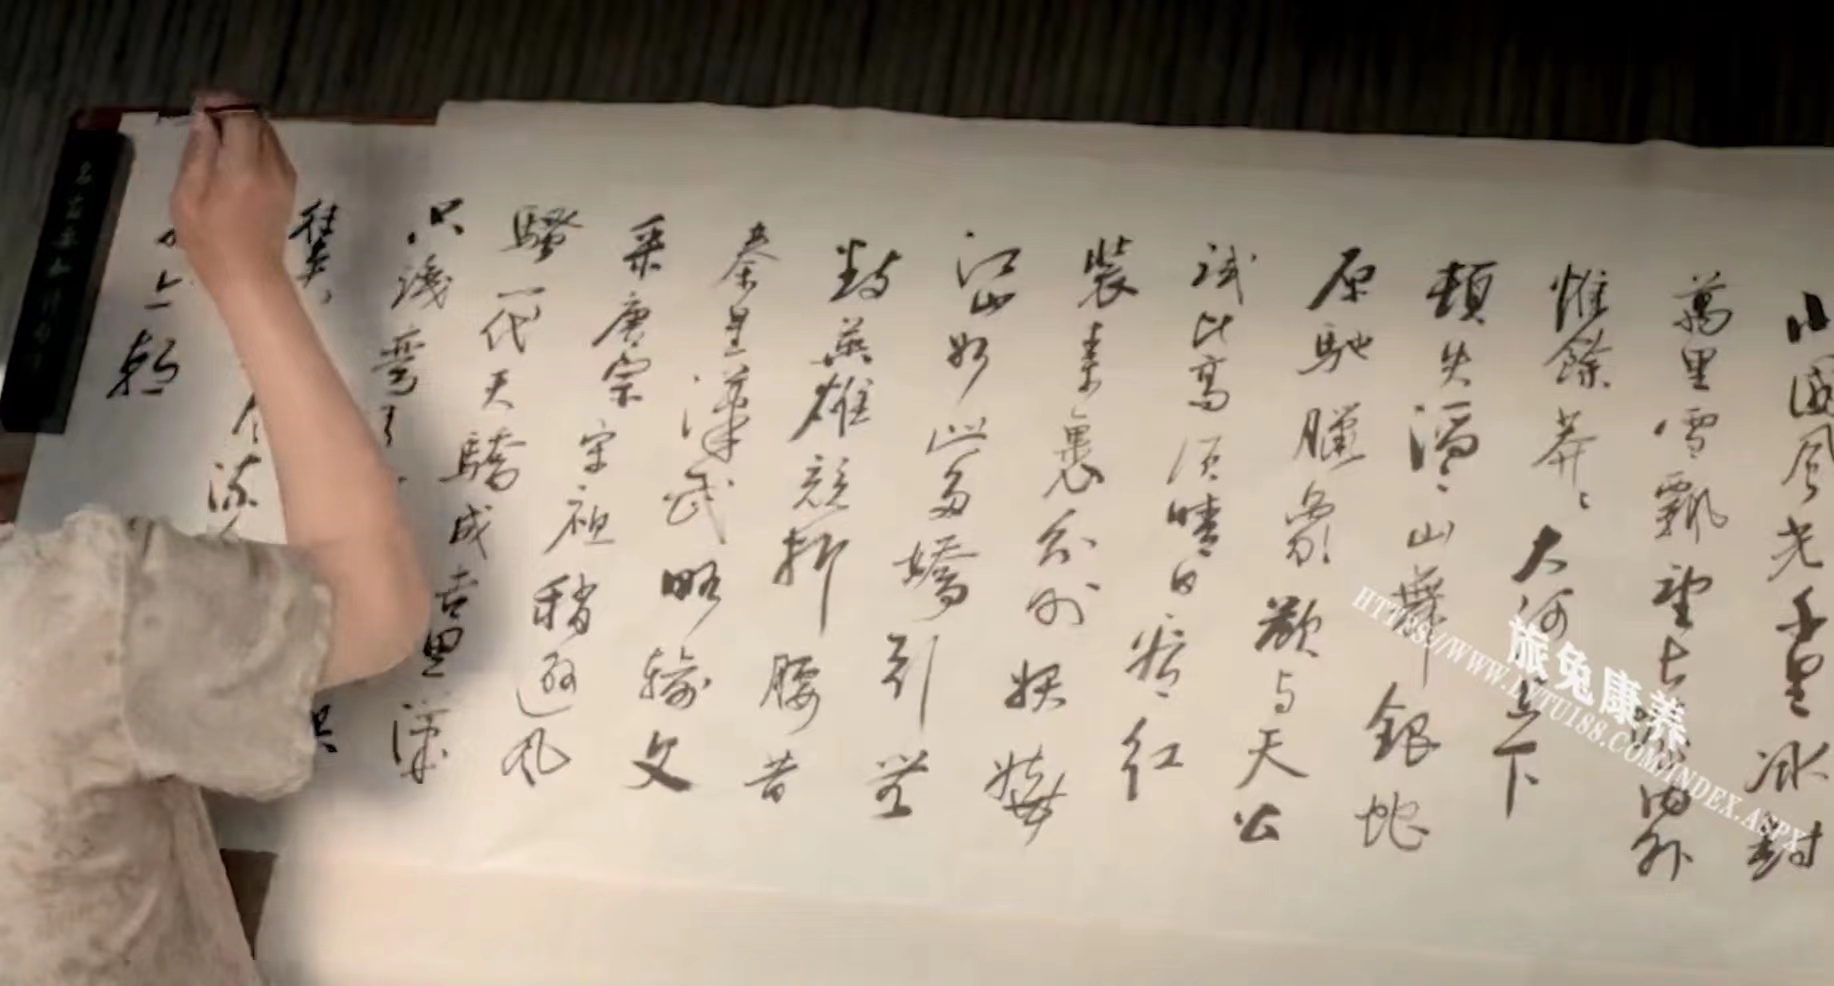 北國風光千里冰封
萬里雪飄望長城內外
惟餘莽〻大河上下
頓失滔〻山舞銀蛇
原馳臘象欲与天公
試比高須晴日看紅
裝素裹分外妖嬈
江山如此多嬌引無
數英雄競折腰昔
秦皇漢武略輸文
采唐宗宋祖稍遜風
騷一代天驕成吉思漢
只識彎弓
往矣
旅兔康养
HTTPS://WWW.LVTU188.COM/INDEX.ASPX